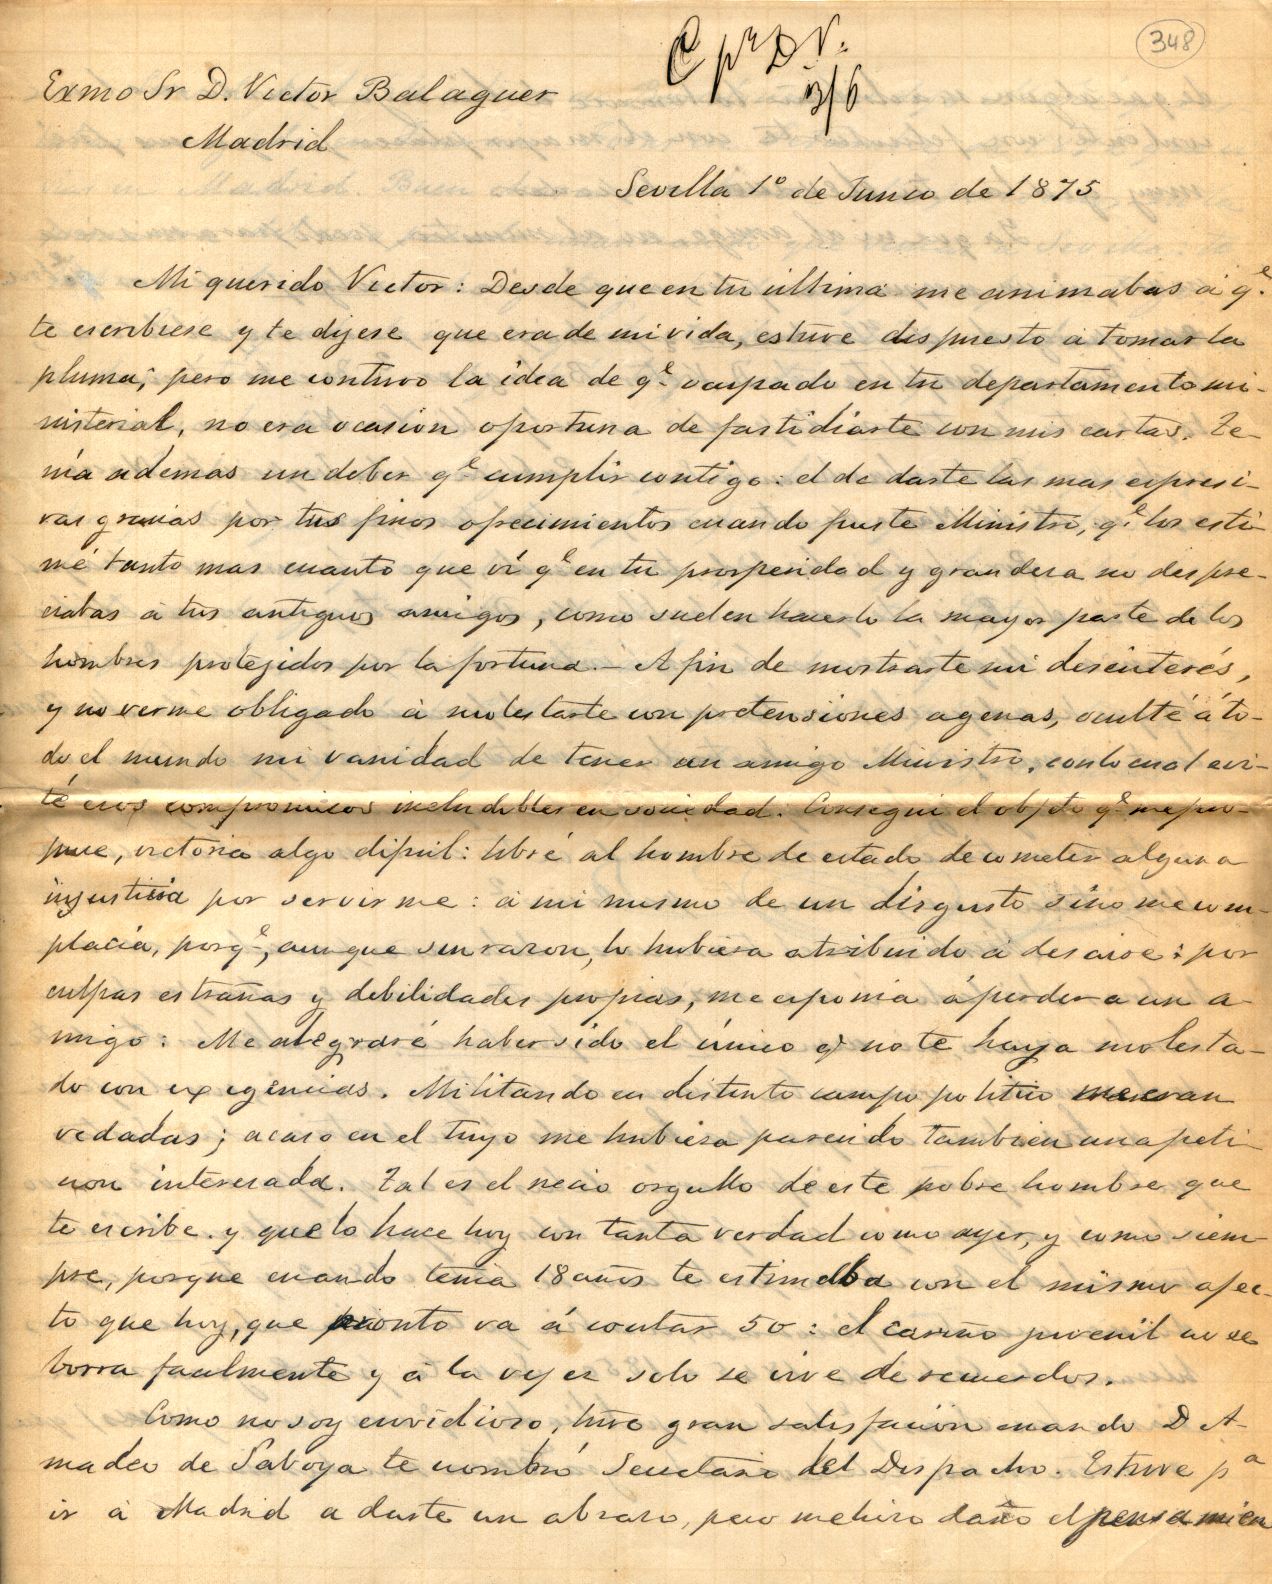 348
C pr D V.
3/6
Exmo Sr D. Victor Balaguer
Madrid
Sevilla 1º de Junio de 1875
Mi querido Victor: Desde que en tu última me animabas á q.e
te escribiese y te dijese que era de mi vida, estuve dispuesto á tomar la
pluma; pero me contuvo la idea de q.e ocupado en tu departamento mi-
nisterial, no era ocasion oportuna de fastidiarte con mis cartas. Te-
nía ademas un deber q.e cumplir contigo: el de darte las mas espresi-
vas gracias por tus finos ofrecimientos cuando fuiste Ministro, q.e los esti-
mé tanto mas cuanto que ví q.e en tu prosperidad y grandesa no despre-
ciabas á tus antiguos amigos, como suelen hacerlo la mayor parte de los
hombres protejidos por la fortuna. – A fin de mostrarte mi desinterés,
y no verme obligado á molestarte con pretensiones agenas, oculté á to-
do el mundo mi vanidad de tener un amigo Ministro, con lo cual evi-
té esos compromisos ineludibles en sociedad. Conseguí el objeto q.e me pro-
puse, victoria algo dificil: libré al hombre de estado de cometer alguna
injusticia por servirme: á mi mismo de un disgusto sino me com-
placía, porq.e, aunque sin razon, lo hubiera atribuido á desaire: por
culpas estrañas y debilidades propias, me esponia á perder a un a-
migo: Me alegraré haber sido el único q.e no te haya molesta-
do con exigencias. Militando en distinto campo politico me eran
vedadas; acaso en el tuyo me hubiera parecido tambien una peti-
cion interesada. Tal es el necio orgullo de este pobre hombre que
te escribe. y que lo hace hoy con tanta verdad como ayer, y como siem-
pre, porque cuando tenia 18 años te estimaba con el mismo afec-
to que hoy, que pronto va á contar 50: el cariño juvenil no se
borra facilmente y á la vejez solo se vive de recuerdos.
Como no soy envidioso, tuve gran satisfacion cuando D A-
madeo de Saboya te nombró Secretario del Despacho. Estuve p.a
ir á Madrid a darte un abraso, pero me hiso daño el pensamien